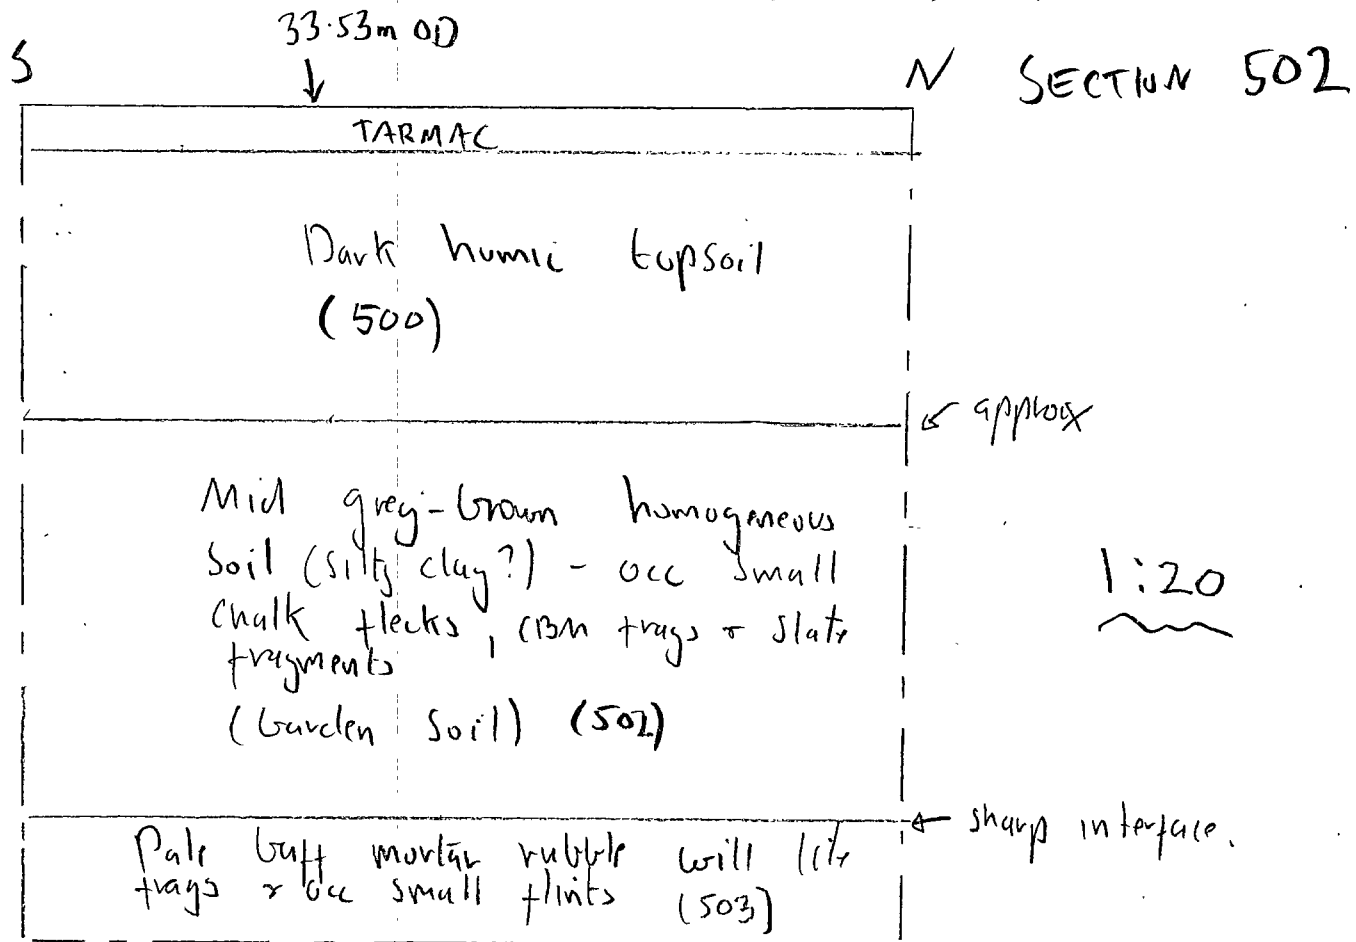 33.53m OD
S
N SECTION 502
TARMAC
Dark humic topsoil
(500)
approx
Mid grey-brown homogeneous
soil (silty clay?) - occ small
chalk flecks, CBM frags + slate
fragments
(Garden soil) (502)
1:20
sharp interface.
Pale buff mortar rubble
frags + occ small flints (503)